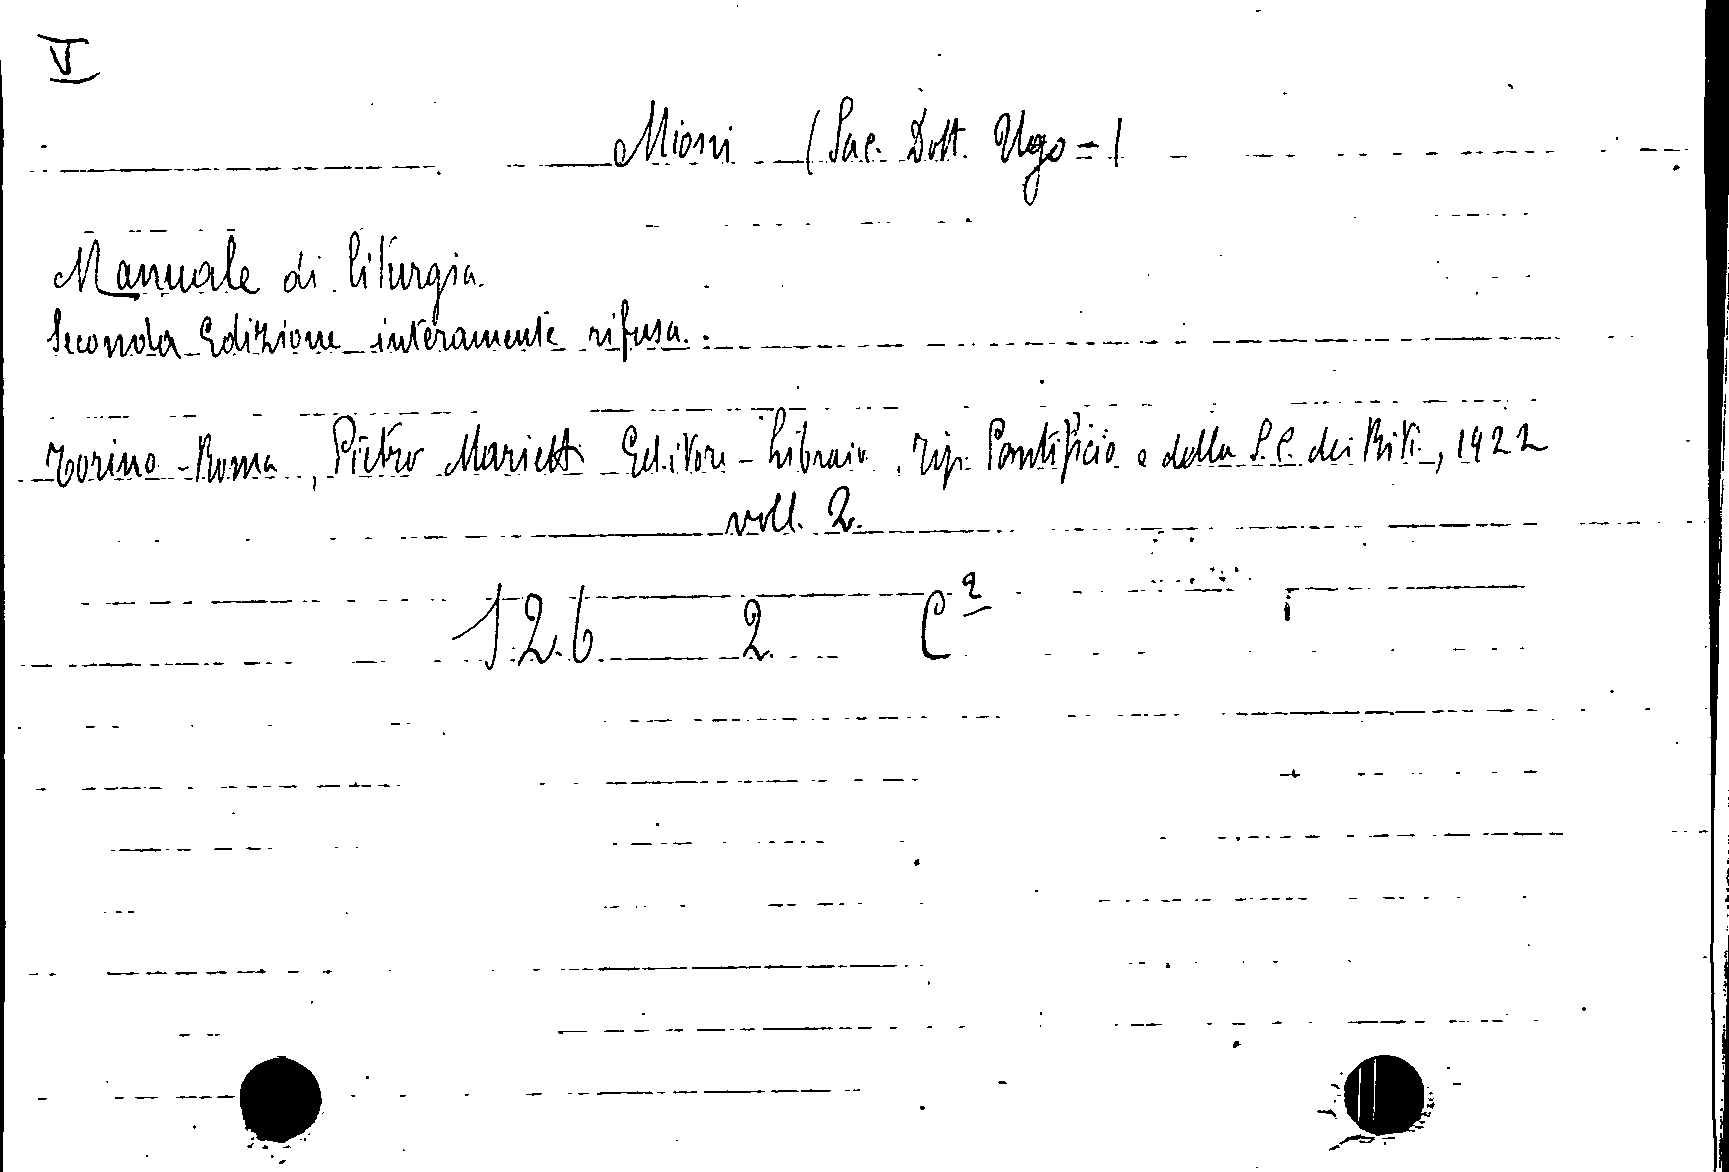 V
Mioni (Sac. Dott. Ugo =)
Manuale di liturgia.
Seconda Edizione interamente rifusa.
Torino - Roma, Pietro Marietti Editore - Libraio, Tip. Pontificio e della S. C. dei Riti, 1922
voll. 2.
126 2 C²